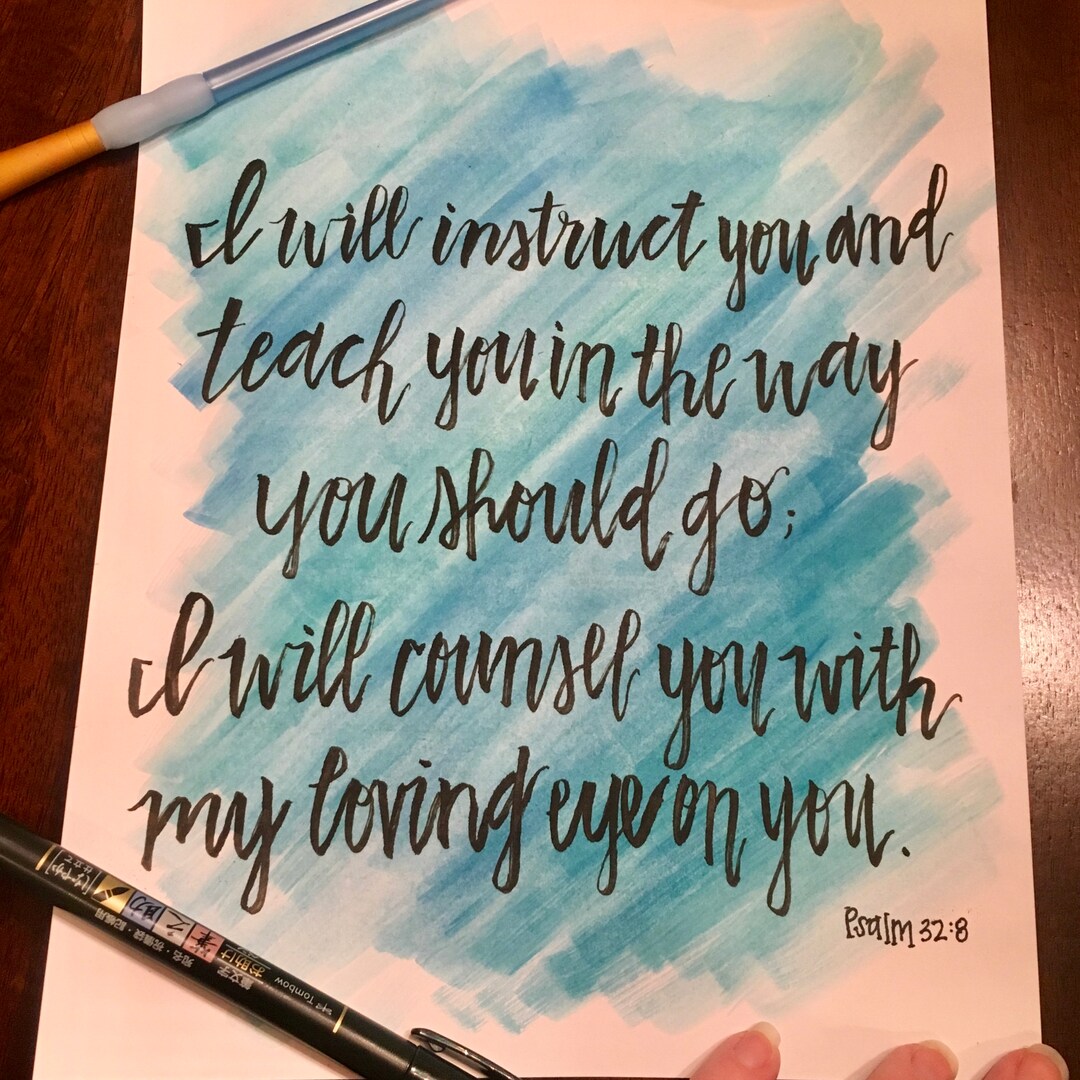 I will instruct you and
teach you in the way
you should go;
I will counsel you with
my loving eye on you.
Psalm 32:8
Tombow
筆文字
お助け
宛名・祝儀袋・記帳用